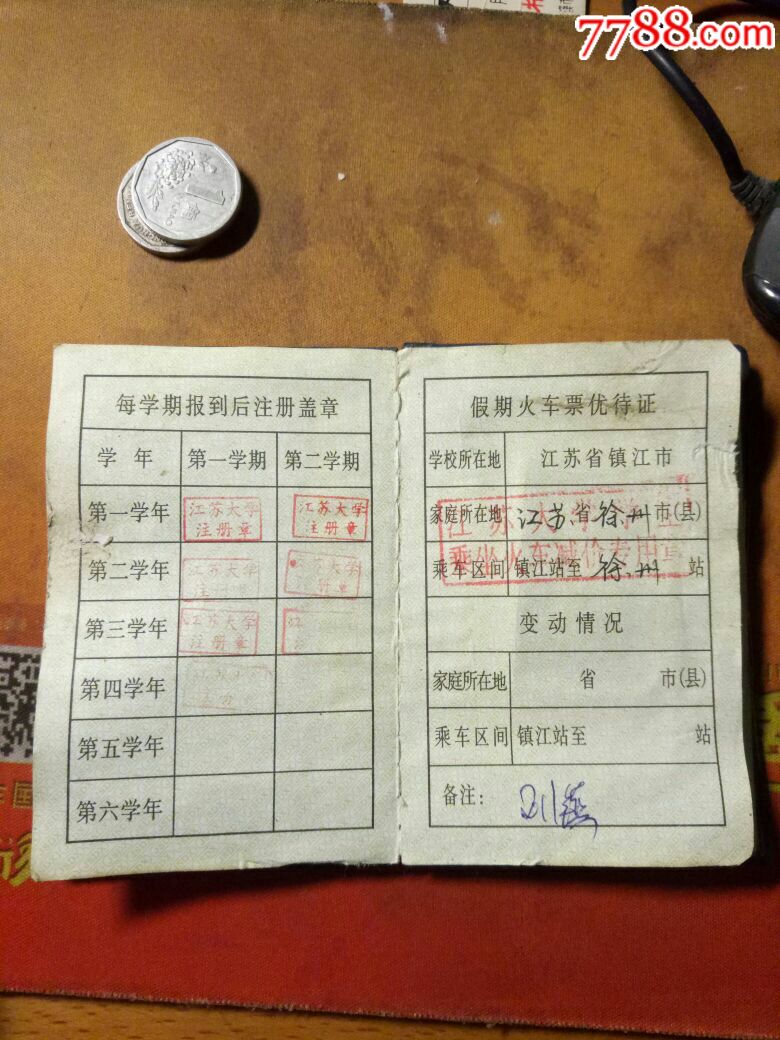 7788.com
1
每学期报到后注册盖章
学年 第一学期 第二学期
第一学年 江苏大学 注册章 江苏大学 注册章
第二学年 江苏大学 江苏大学 册章
第三学年 江苏大学 注册章 江
第四学年
第五学年
第六学年
假期火车票优待证
学校所在地 江苏省镇江市
家庭所在地 江苏省徐州市(县)
乘车区间 镇江站至徐州站
江苏大学
乘坐火车减价专用章
变动情况
家庭所在地 省 市(县)
乘车区间 镇江站至 站
备注: